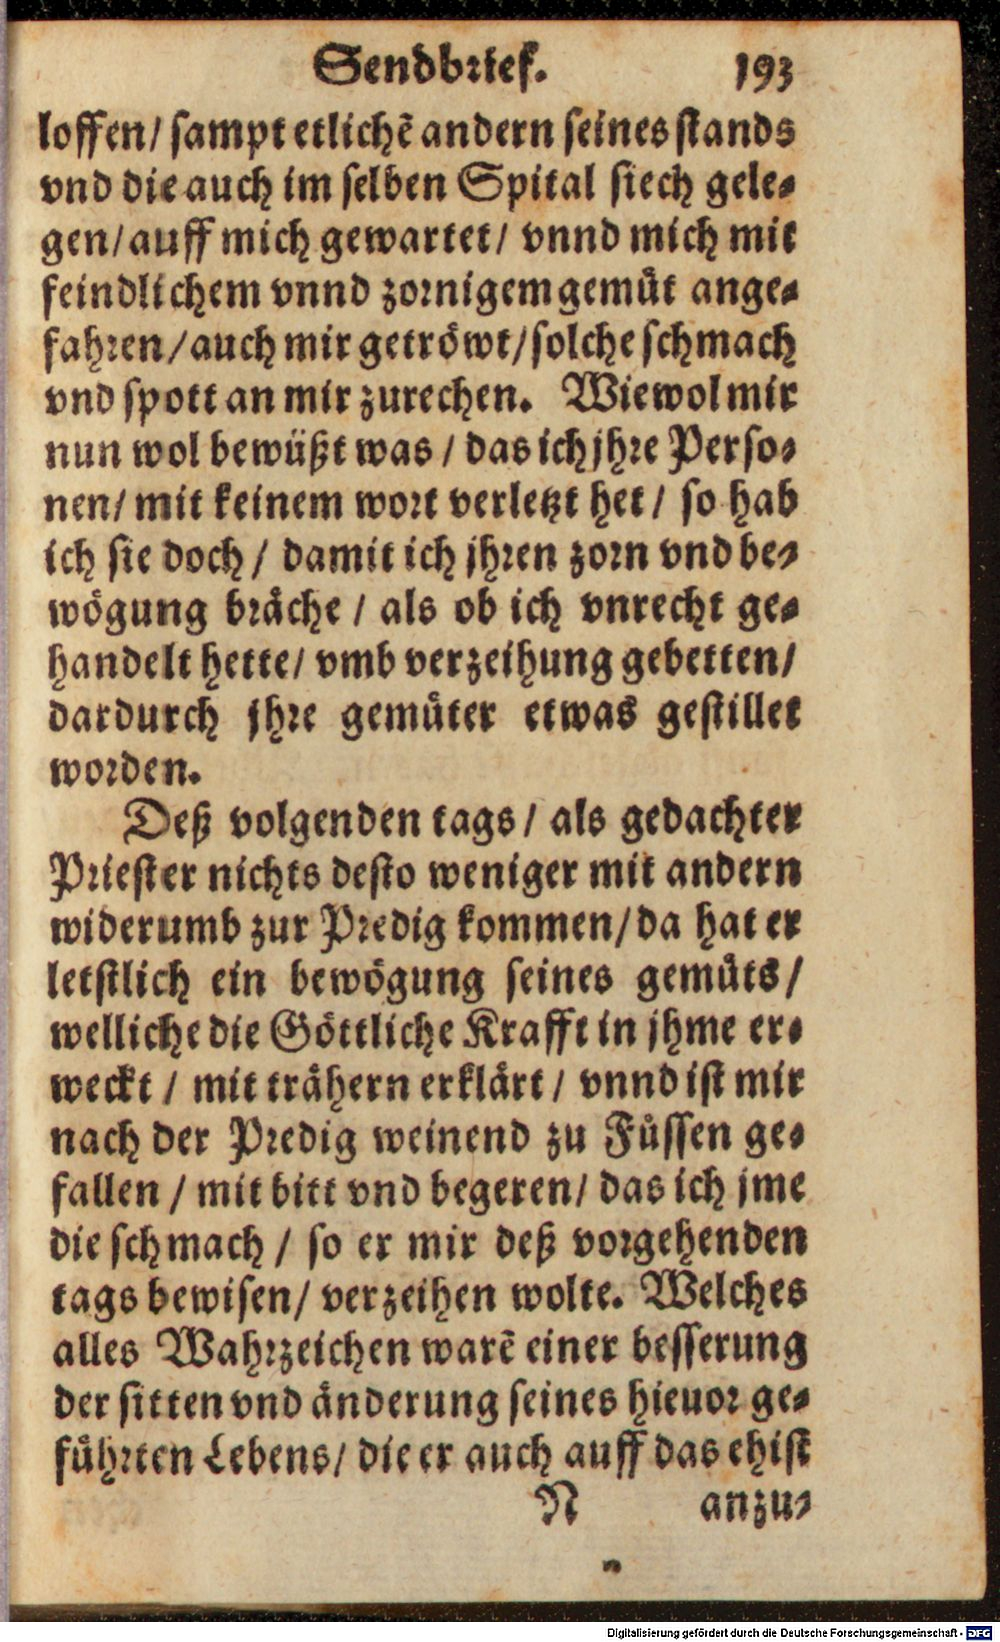 Sendbrief. 193
loffen/ sampt etlichē andern seines stands
vnd die auch im selben Spital siech gele-
gen/ auff mich gewartet/ vnnd mich mit
feindlichem vnnd zornigem gemuͤt ange-
fahren/ auch mir getroͤwt/ solche schmach
vnd spott an mir zurechen. Wiewol mir
nun wol bewüßt was/ das ich jhre Perso-
nen/ mit keinem wort verletzt het/ so hab
ich sie doch/ damit ich jhren zorn vnd be-
woͤgung braͤche/ als ob ich vnrecht ge-
handelt hette/ vmb verzeihung gebetten/
dardurch jhre gemuͤter etwas gestillet
worden.
Deß volgenden tags/ als gedachter
Priester nichts desto weniger mit andern
widerumb zur Predig kommen/ da hat er
letstlich ein bewoͤgung seines gemuͤts/
welliche die Goͤttliche Krafft in jhme er-
weckt/ mit traͤhern erklaͤrt/ vnnd ist mir
nach der Predig weinend zu Fuͤssen ge-
fallen/ mit bitt vnd begeren/ das ich jme
die schmach/ so er mir deß vorgehenden
tags bewisen/ verzeihen wolte. Welches
alles Wahrzeichen warē einer besserung
der sitten vnd aͤnderung seines hieuor ge-
fuͤhrten Lebens/ die er auch auff das ehist
N anzu-
Digitalisierung gefördert durch die Deutsche Forschungsgemeinschaft - DFG